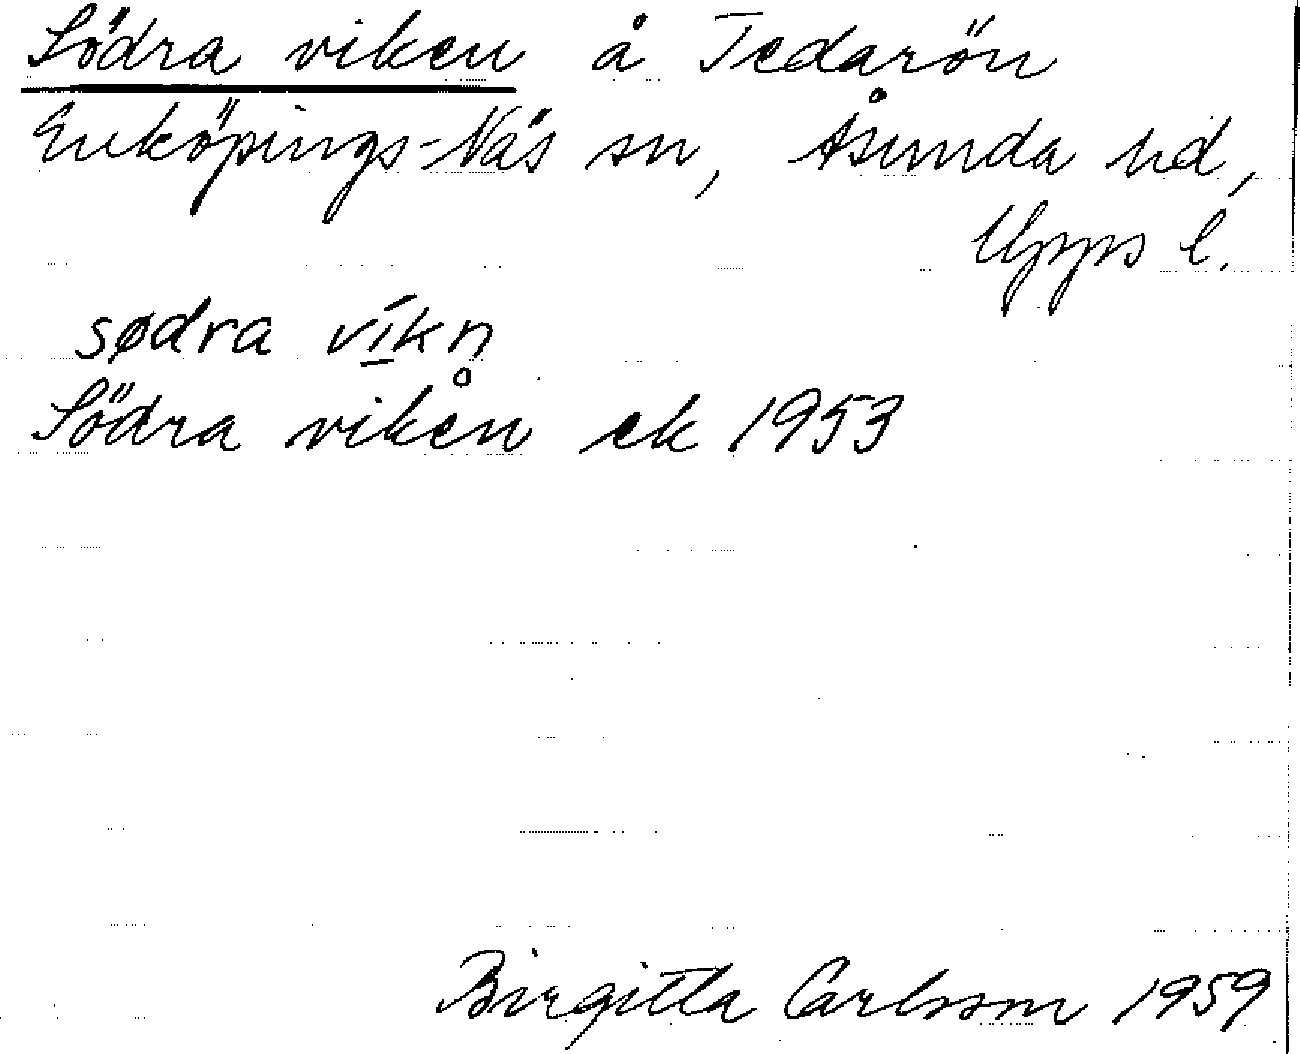 Södra viken å Tedarön
Enköpings-Näs sn, Åsunda hd,
Upps l.
sødra víkn̥
Södra viken ek 1953
Birgitta Carlsson 1959